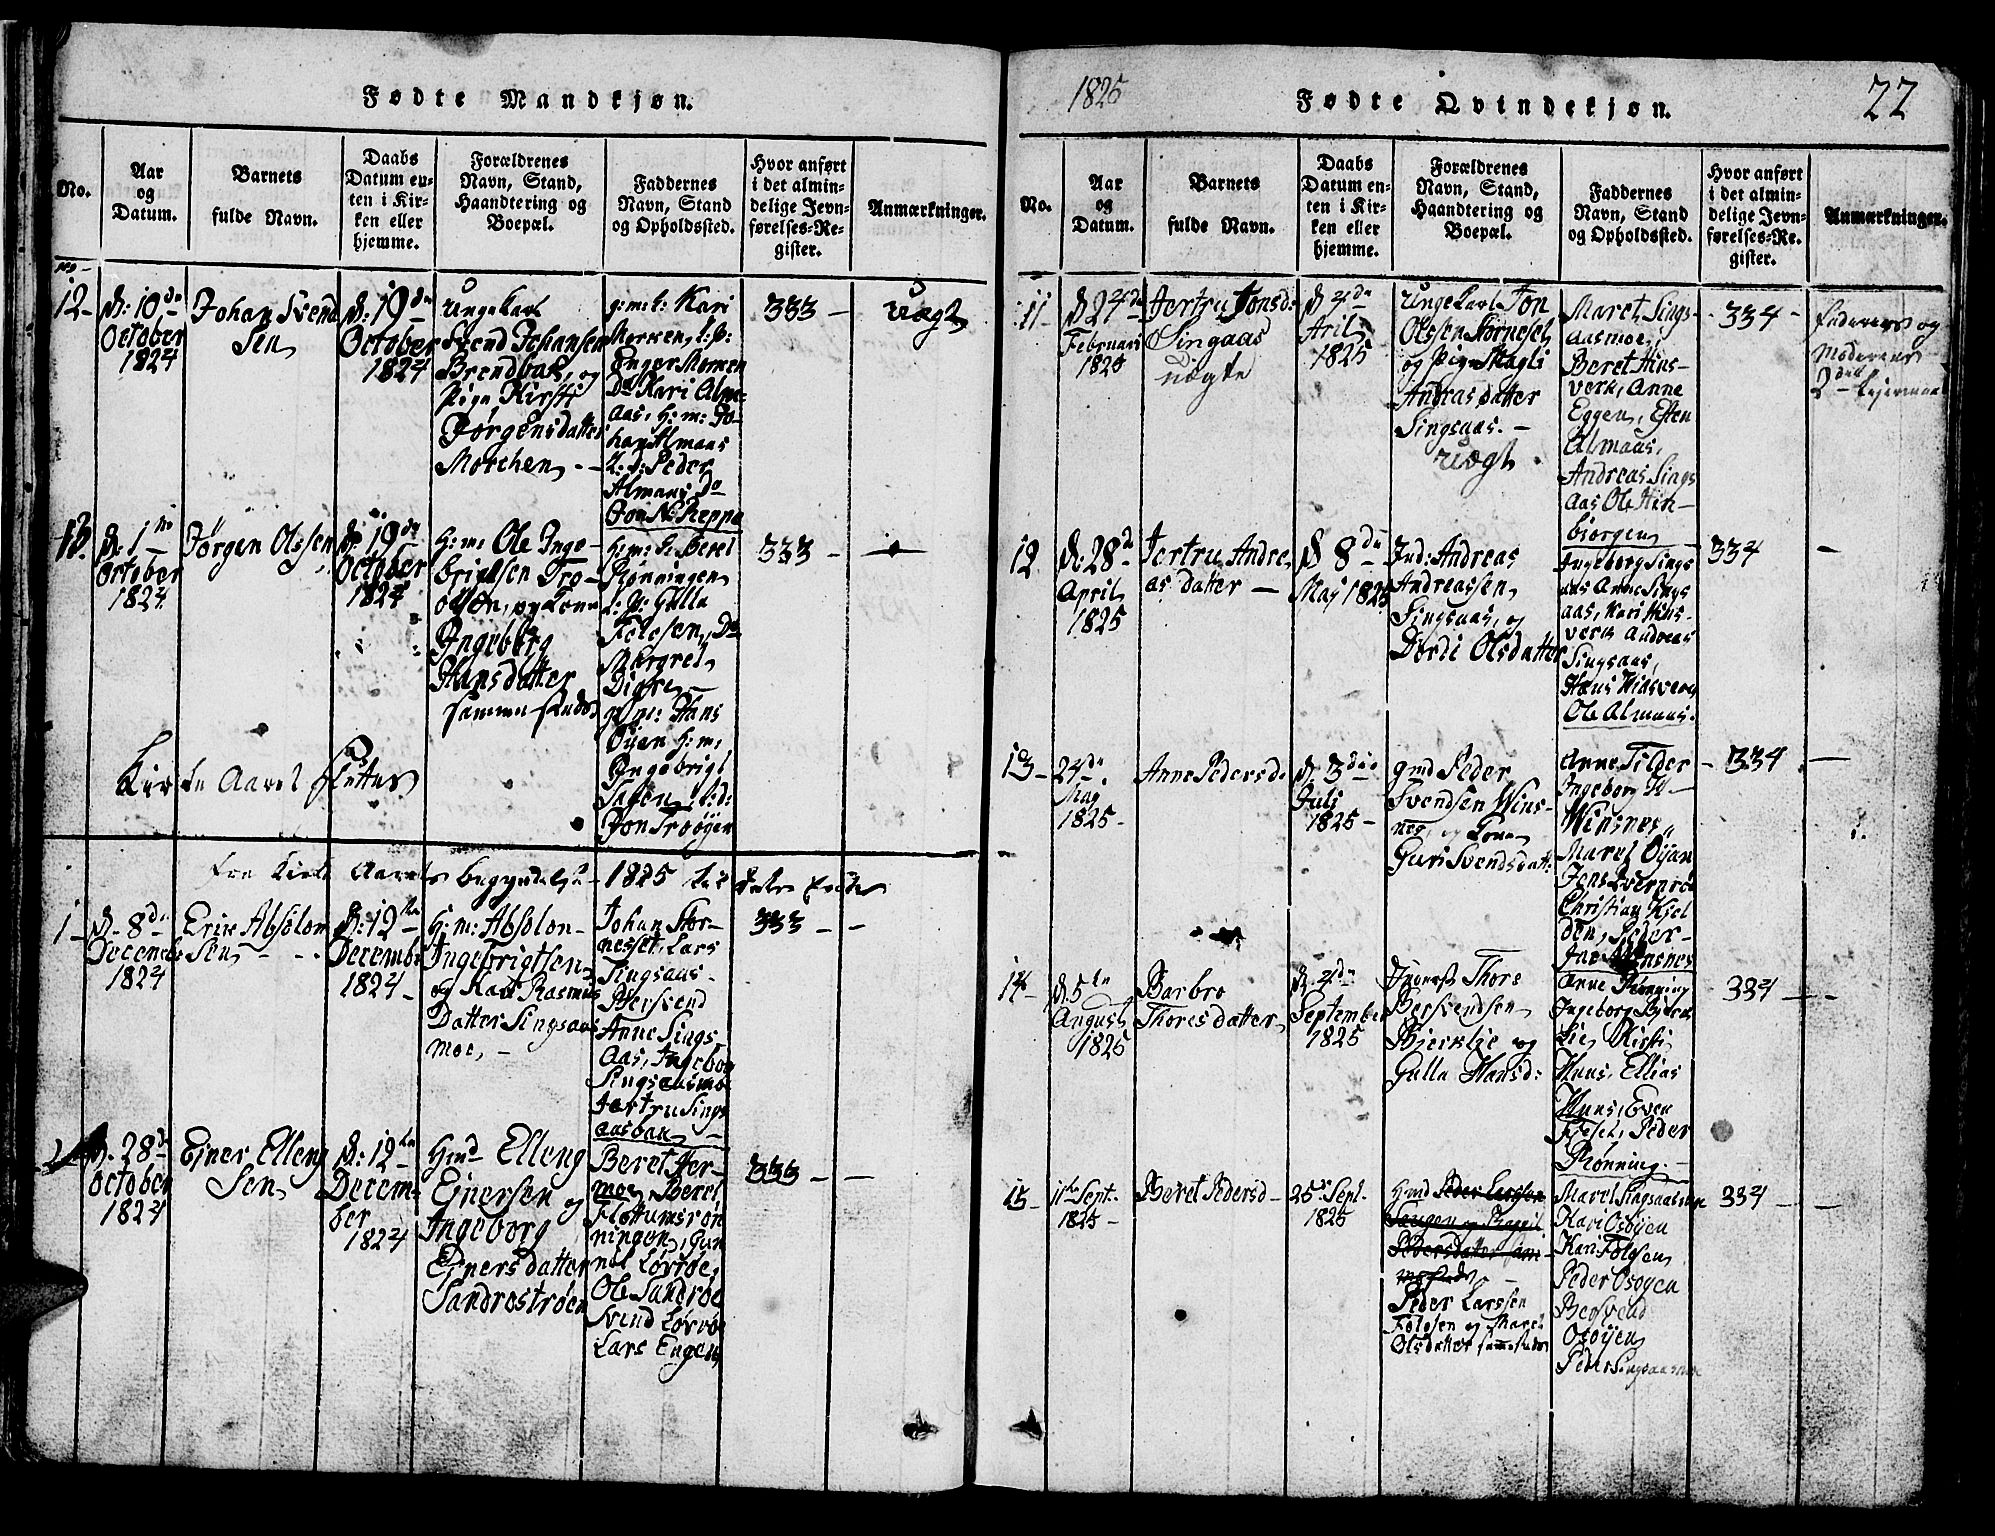 Fødte Mandkjøn.
No.
Aar
og
Datum.
Barnets
fulde Navn.
Daabs
Datum en-
ten i Kir-
ken eller
hjemme.
Forældrenes
Navn, Stand,
Haandtering og
Boepæl.
Faddernes
Navn, Stand
og Opholdssted.
Hvor anført
i det almin-
delige Jevn-
førelses-Re-
gister.
Anmærkninger.
12
d: 10de
October
1824
Johan Svend
Sen
d: 19de
October
1824
Ungekarl
Svend Johansen
Brendbak, og
Pige Kirsti
Jørgensdatter
Morchen. -
g: m: k: Kari
Morken, t: p:
Inger Morken
Do Kari Alm-
aas, h: m: Jo-
han Almaas
Peder
Almaas Do
Jon N: Reppe
333 -
Uægt
13.
d: 1ste
October
1824
Jørgen Olssen
d: 19de
October
1824
H: m: Ole Inge-
brigtsen Tro-
øyen, og Kone
Ingeborg
Hansdatter
sammesteds
h: m: k: Beret
Rønningen
t: p: Gulla
Folosen, Do
Margred
Digre -
Hans
Øyen h: m:
Ingebrigt
Jon Troøyen
333 -
Kirke Aaret sluttes
fra Kirke Aarets begyndelse 1825
1
d. 8de
Decemb:
1824
Erik Absolon
Sen - - -
d: 12te
Decembr
1824 -
H: m: Absolon
Ingebrigtsen
og Kari Rasmus
Datter Singsaas
moe, -
Johan Stor-
nesset, Lars
Singsaas
Bersvend
Anne Sings
aas, Ingebor
Singsaasmo
Jertru Sings
aasbak -
333 - -
2
d. 28de
October
1824
Ejner Elleng
Sen
d: 12te
Decem-
ber
1824
Hmd Elleng
Ejnersen og
Ingeborg
Ejnersdatter
Sandrostrøen
Beret Her-
moe, Beret
Flottumsrøn
ningen, Gun
nil Løvrøe,
Ole Sandrøe
Svend Løvrøe
Lars Engen
333 - -
1825
Fødte Qvindekjøn.
22
No.
Aar
og
Datum.
Barnets
fulde Navn.
Daabs
Datum en-
ten i Kir-
ken eller
hjemme.
Forældrenes
Navn, Stand,
Haandtering og
Boepæl.
Faddernes
Navn, Stand
og Opholdssted.
Hvor anført
i det almin-
delige Jevn-
førelses-Re-
gister.
Anmærkninger.
11
d 24de
Februari
1825
Jertru Jonsd:
Singaas
uægte
d 4de
Aril
1825
Ungekarl Jon
Olssen Storneset
og Pige Magli
Andrasdatter
Singsaas. -
Uægt
Maret Sings-
aasmoe,
Beret Hins-
verk, Anne
Eggen, Esten
Almaas,
Andreas Sings
aas Ole Hin-
biorgen
334 -
Faderens og
Moderens
2det Leiermaal
12
d: 28de
April
1825
Jertru Andre
as datter -
d 8de
Maj 1825
Ind: Andreas
Andreassen
Singsaas, og
Dordi Olsdatter
Ingeborg Sings
aas Anne Sings
aas, Kari Hins-
verk Andreas
Singsaas,
Hans Hinsverk
Ole Almaas.
334 -
13 -
24de
May
1825 -
Anne Pedersd.
d. 3die
Juli
1825 -
gmd Peder
Svendsen Wins-
nes, og Kone
Guri Svendsdatt:
Anne Tilder
Ingeborg
Winsnes,
Maret Øyan
Jens
Christian Kjel
den, Peder
Winsnes
- 334 -
14
d. 5te
August
1825
Barbro
Thoresdatter
d. 4de
September
1825
Thore
Bersvendsen
Bjerklie og
Gulla Hansd:
Anne Rønning
Ingeborg Bjerk
lie, Kirsti
Huus, Ellias
Huus, Even
Foesen, Peder
Rønning. -
334 - -
15
11te Sept.
1825 -
Beret Pedersd -
25de Sept.
1825
Hmd Peder Larssen
Peder Larssen
Folosen og Maret
Olsdatter sammesteds
Maret Singsaasmoe
Kari Osøyen
Kari Foløsen
Peder Osøyen
Bersvend
Osøyen
Peder Singsaasmoe
334 -